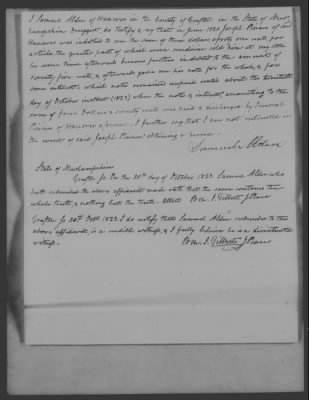 I Samuel Alden of Hanover in the County of Grafton in the State of New
hampshire Druggist, do testify & say that in June 1820 Joseph Pinneo of said
Hanover was indebted to me the sum of three dollars & forty one cents for
articles the greater part of which were medicine sold him at my store
he some time afterwards became further indebted to the amount of
seventy five cents, & afterwards gave me his note for the whole, & for
some interest which note remained unpaid until about the
day of October instant (1823) when the note & interest, amounting to the
sum of four dollars & twenty cents was paid & discharged by
Pinneo of Hanover I further say that I am not interested in
the event of said Joseph Pinneo's obtaining a Pension.
Samuel Alden
State of Newhampshire
Grafton Ss. On the 30th day of October 1823 Samuel Alden who
hath subscribed the above affidavit made oath that the same contains the
whole truth, & nothing but the truth. Attest Bn. J. Gilbert J. Peace
Grafton Ss 30th Octr. 1823. I do certify that Samuel Alden subscriber to the
above affidavit, is a credible witness, & I fully believe he is a disinterested
witness. Bn. J. Gilbert J. Peace